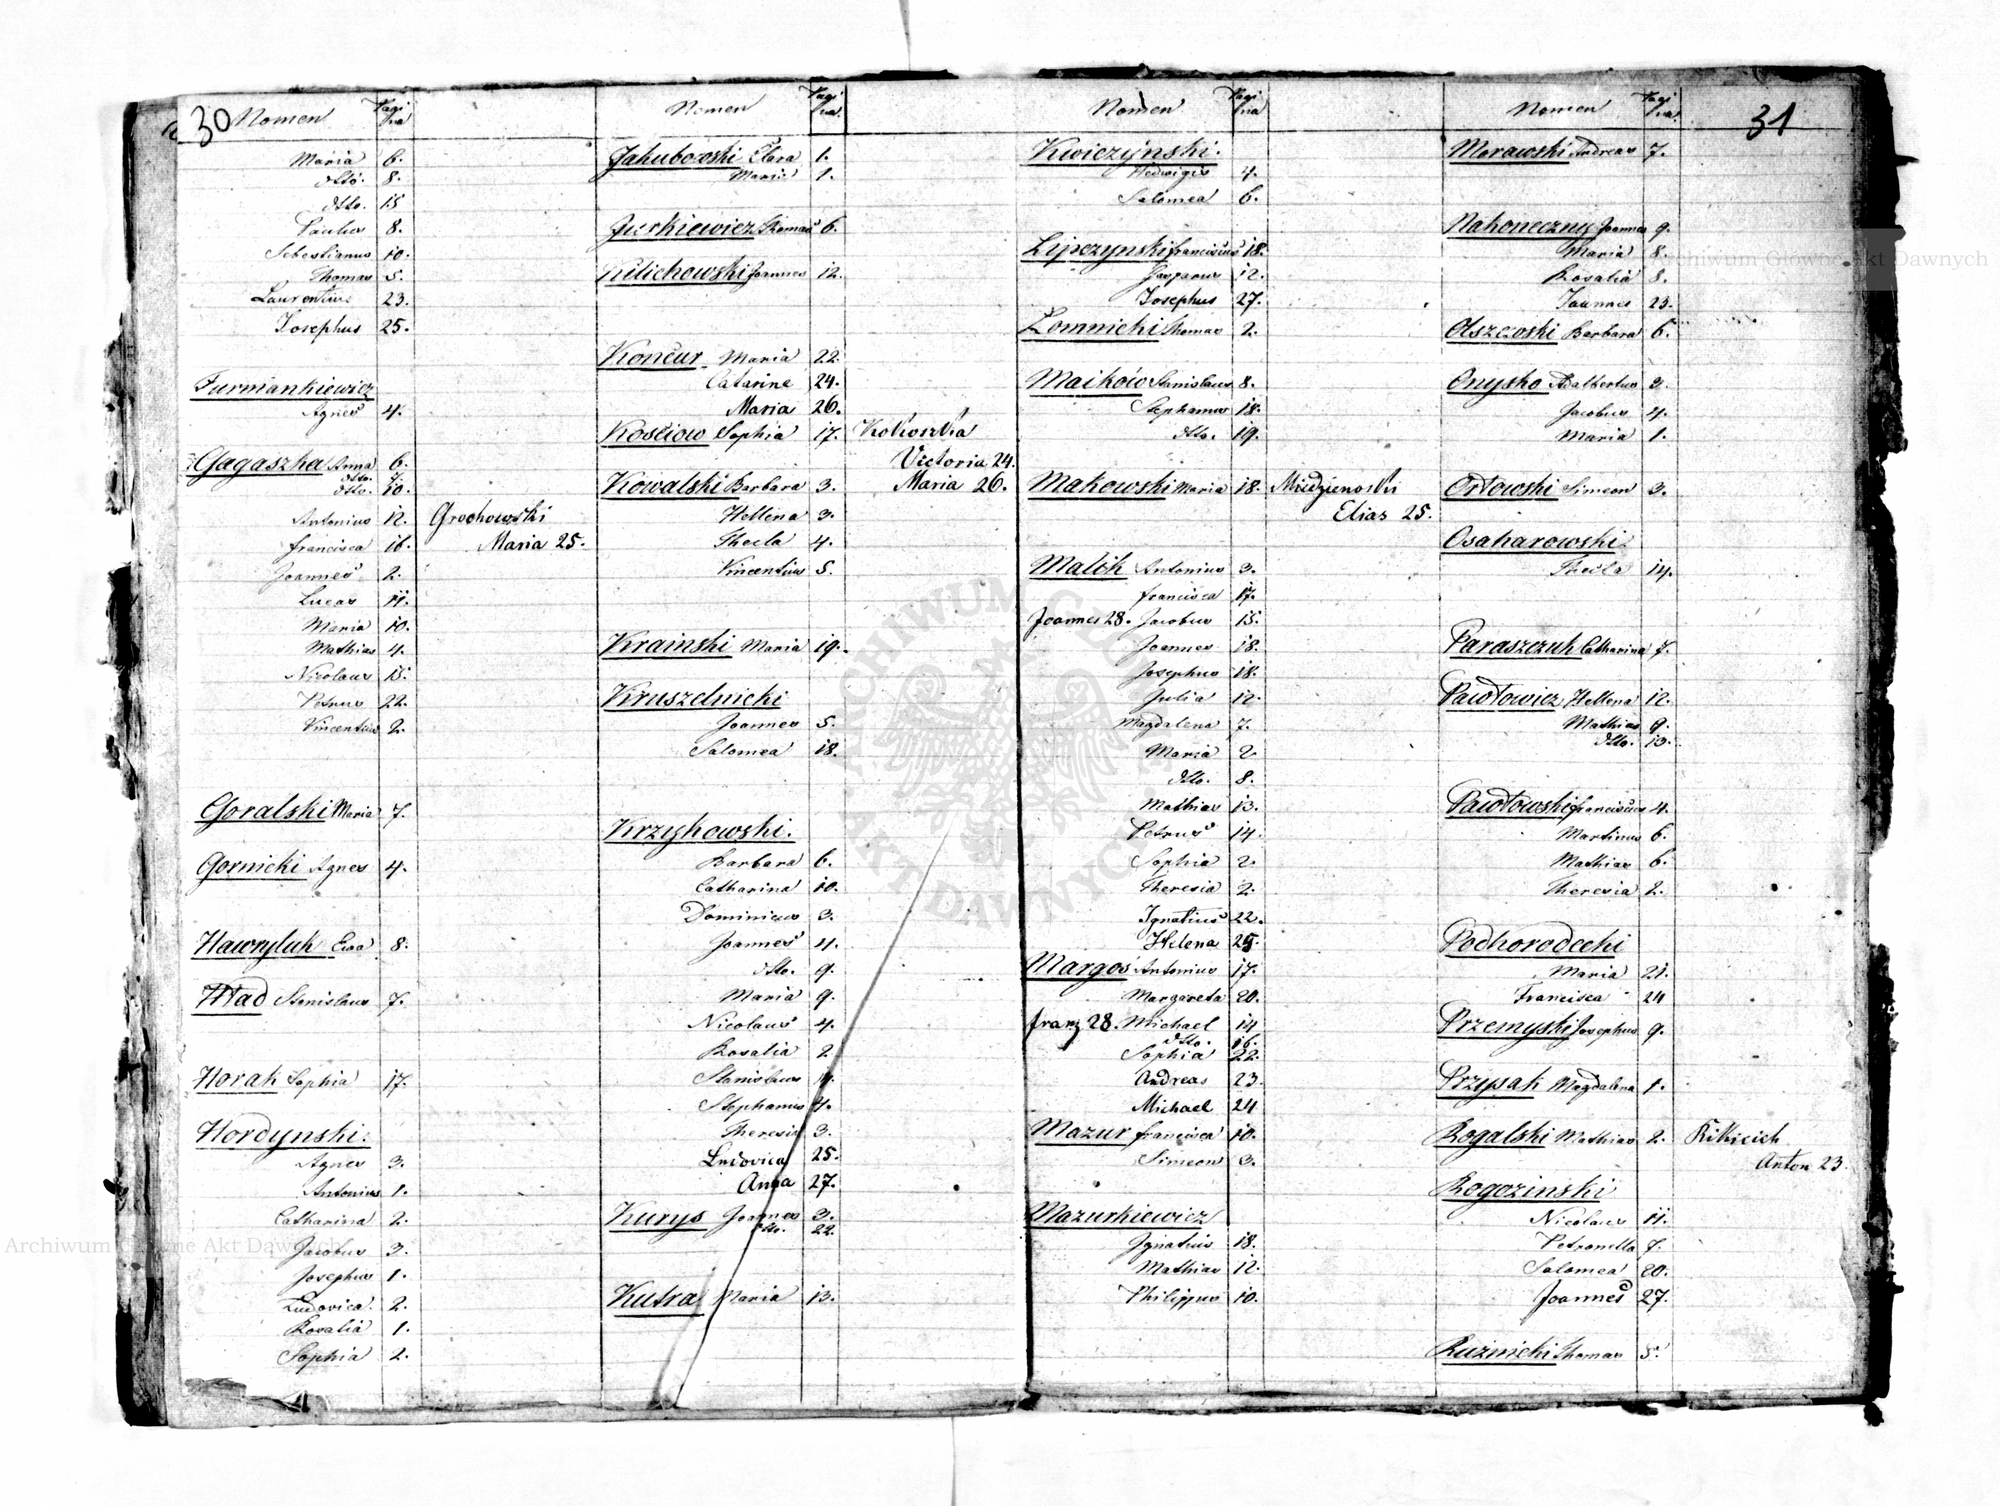 30
Nomen
Pagi
na
Maria 6.
dtto. 8.
dtto. 15
Paulus 8.
Sebestianus 10.
Thomas 5.
Laurentius 23.
Josephus 25.
Furmankiewicz
Agnes 4.
Gagaszka Anna 6.
dtto. 7.
dtto. 10.
Antonius 12.
Francisca 16.
Joannes 2.
Lucas 11.
Maria 10.
Mathias 4.
Nicolaus 15.
Petrus 22.
Vincentius 2.
Goralski Maria 7.
Gornicki Agnes 4.
Hawryluk Eva 8.
Hlad Stanislaus 7.
Horak Sophia 17.
Hordynski.
Agnes 3.
Antonius 1.
Catharina 2.
Jacobus 3.
Josephus 1.
Ludovica. 2.
Rosalia 1.
Sophia 2.
Grochowski
Maria 25.
Nomen
Pagi
na.
Jakubowski Clara 1.
Maria 1.
Jurkiewicz Thomas 6.
Kilichowski Joannes 12.
Koncur Maria 22.
Catarine 24.
Maria 26.
Kościow Sophia 17.
Kowalski Barbara 3.
Hellena 3.
Thecla 4.
Vincentius 5.
Krainski Maria 19.
Kruszelnicki
Joannes 5.
Salomea 18.
Krzykowski.
Barbara 6.
Catharina 10.
Dominicus 3.
Joannes 4.
dtto. 9.
Maria 9.
Nicolaus 4.
Rosalia 2.
Stanislaus
Stephanus 4.
Theresia 3.
Ludovica 25.
Anna 27.
Kurys Joannes 3.
dtto. 22.
Kutra Maria 13.
Kokoszka
Victoria 24.
Maria 26.
Nomen
Pagi
na
Kwiczynski.
Hedwigis 4.
Salomea 6.
Lipczynski Franciscus 18.
Gasparus 12.
Josephus 27.
Lomnicki Thomas 2.
Maików Stanislaus 8.
Stephanus 18.
dtto. 19.
Makowski Maria 18.
Malik Antonius 3.
Francisca 17.
Joannes 28. Jacobus 15.
Joannes 18.
Josephus 18.
Julia 12.
Magdalena 7.
Maria 2
dtto. 8.
Mathias 13.
Petrus 14.
Sophia 2.
Theresia 2.
Ignatius 22.
Helena 25.
Margoś Antonius 17.
Margareta 20.
Franz 28. Michael 14
dtto. 16.
Sophia 22.
Andreas 23.
Michael 24
Mazur Francisca 10.
Simeon 3.
Mazurkiewicz
Ignatius 18.
Mathias 12.
Philippus 10.
Miedzienoski
Elias 25.
Nomen
Pagi
na.
31
Morawski Andreas 7.
Nakoneczny Joannes 9.
Maria 8.
Rosalia 8.
Joannes 23.
Olszewski Barbara 6.
Onysko Adalbertus 3.
Jacobus 4.
Maria 1.
Orłowski Simeon 3.
Osakarowski.
Thecla 14.
Paraszczuk Catharina 7.
Pawłowicz Hellena 12.
Mathias 9.
dtto. 13.
Pawłowski Franciscus 4.
Martinus 6.
Mathias 6.
Theresia 2.
Podhorodecki
Maria 21.
Francisca 24
Przemyski Josephus 9.
Przysak Magdalena 1.
Rogalski Mathias 2.
Rogozinski
Nicolaus 11.
Petronella 7.
Salomea 20.
Joannes 27.
Ruznicki Thomas 5.
Rikicich
Anton 23.
Archiwum Główne Akt Dawnych
Archiwum Główne Akt Dawnych
ARCHIWUM GŁÓWNE
AKT DAWNYCH